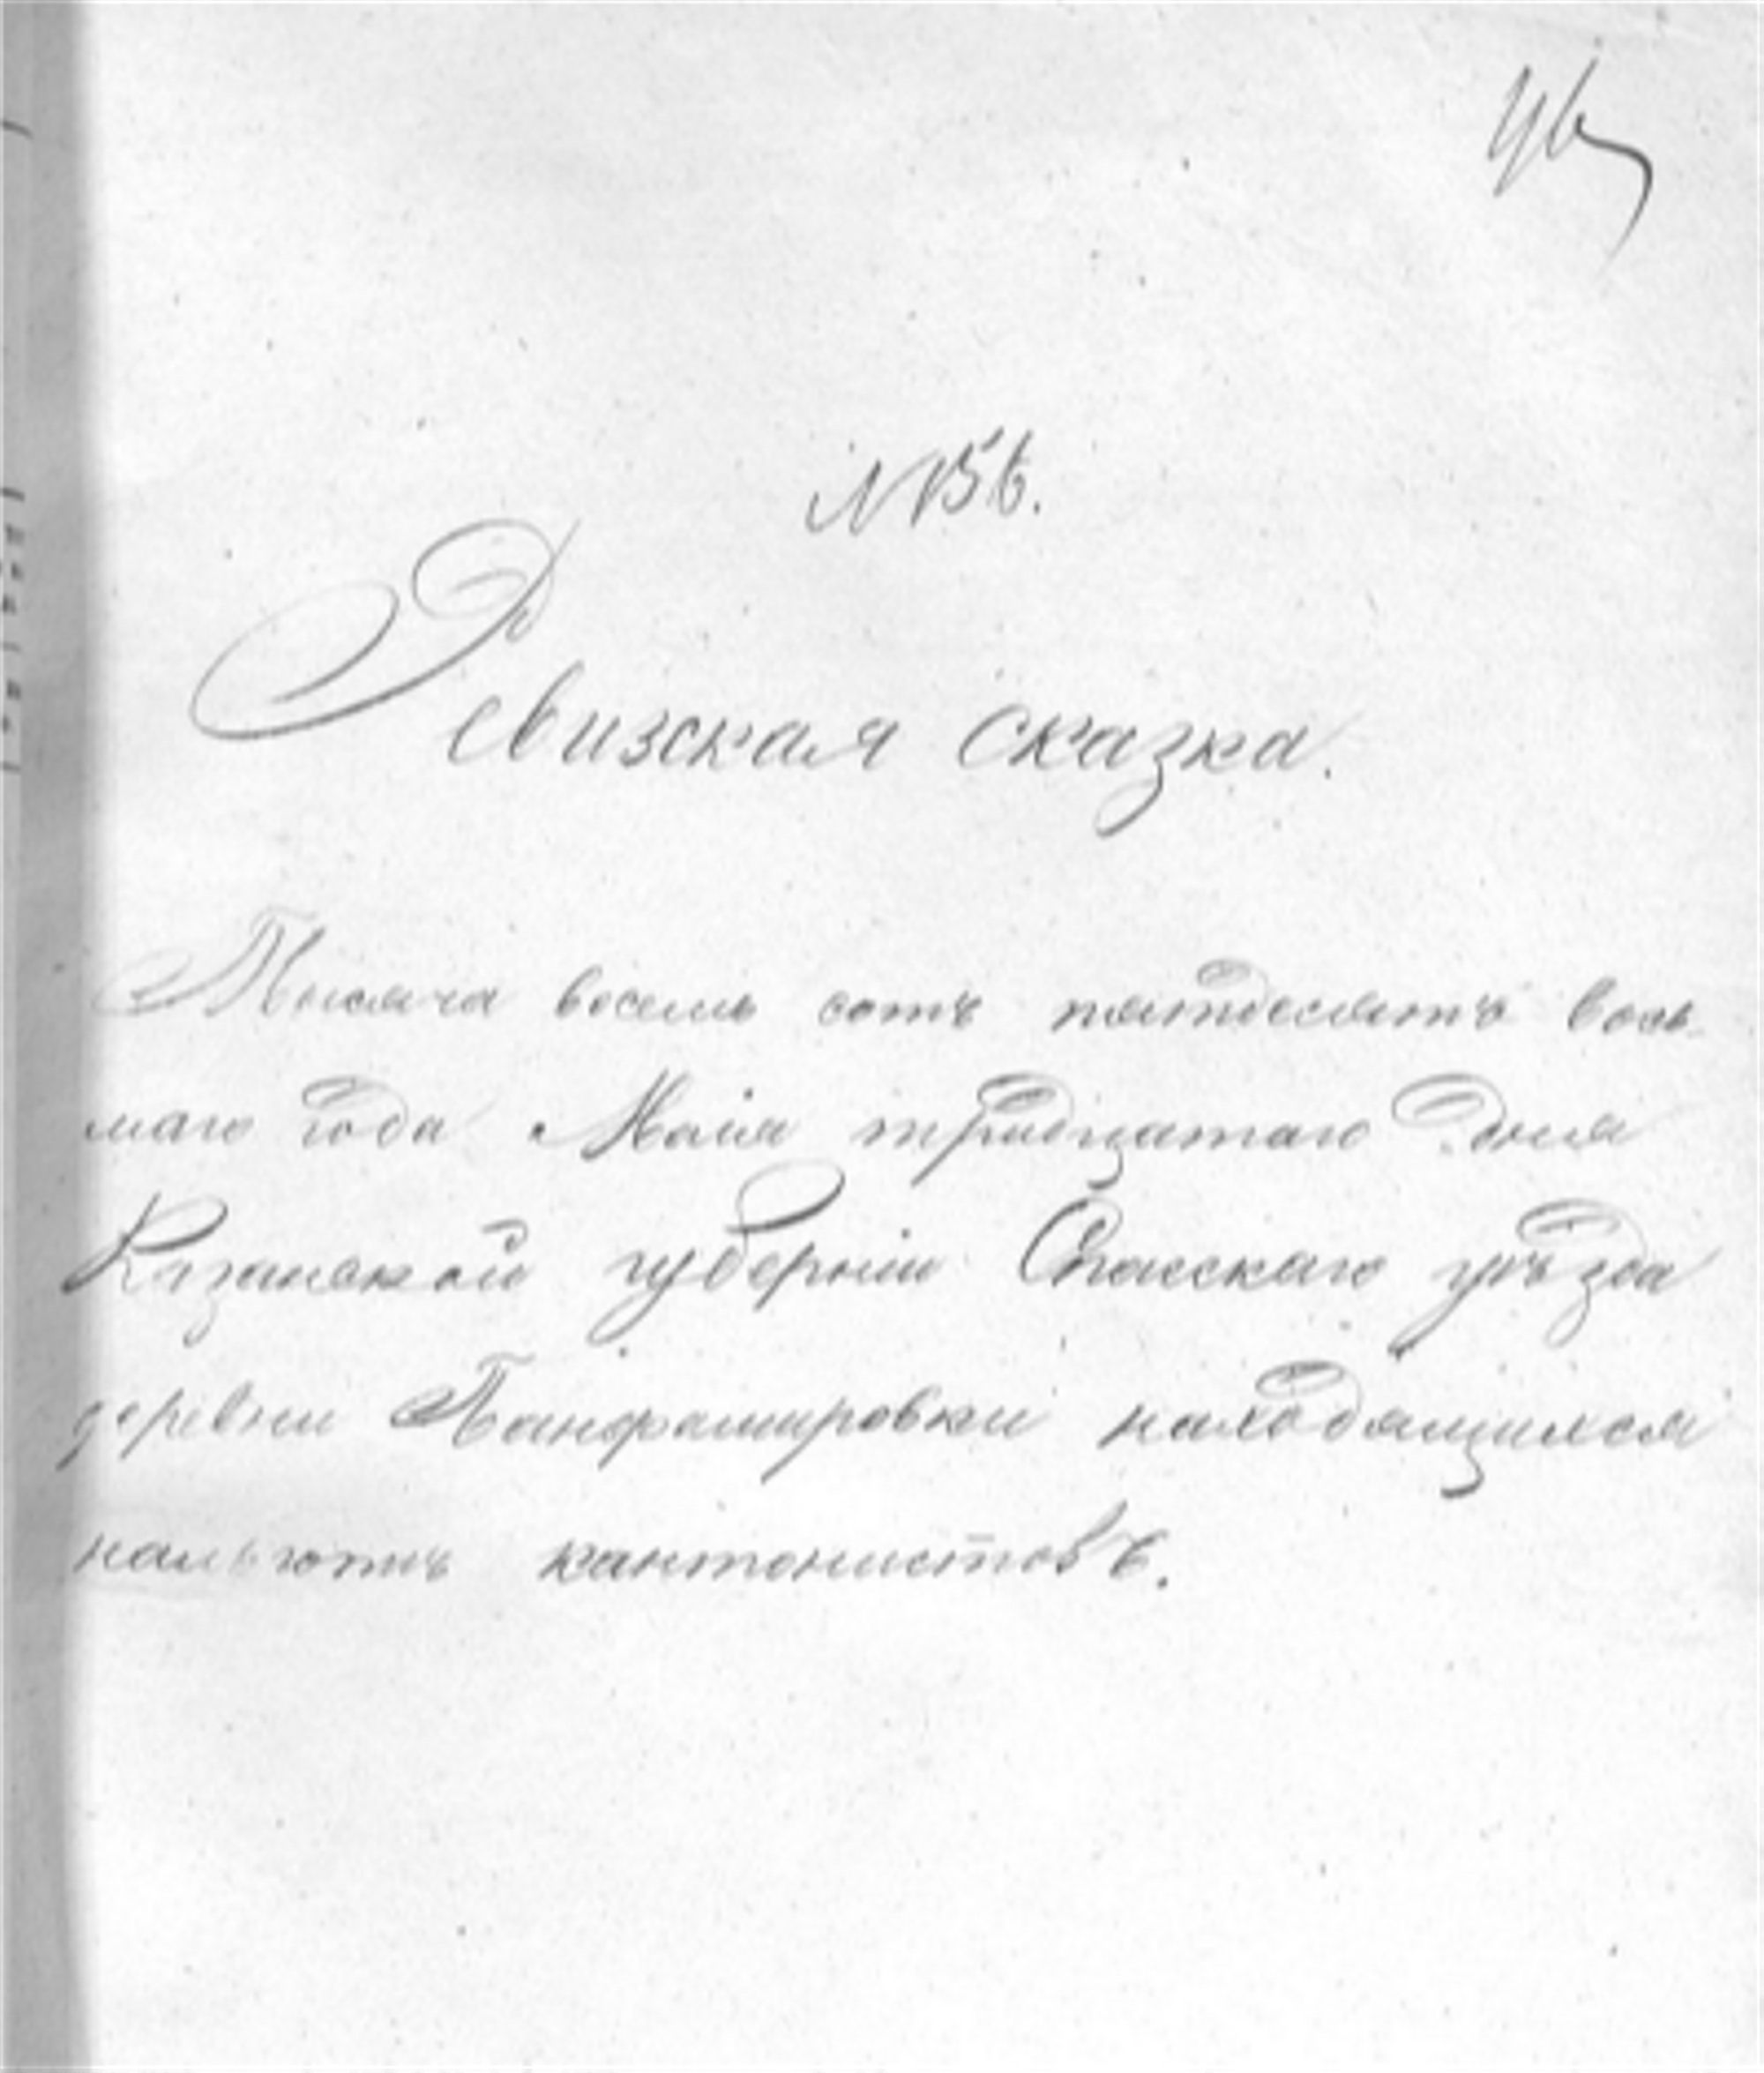 46
N 156.
Ревизская сказка.
Тысяча восемь сотъ пятдесятъ вось-
маго года Маія тридцатаго дня
Казанской губерніи Спасскаго уѣзда
деревни Панфамировки находящихся
нальготѣ кантонистовъ.